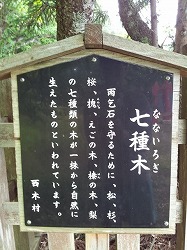 なないろぎ
七種木
雨乞石を守るために、松、杉、
桜、桃、えごの木、榛の木、梨
の七種類の木が一株から自然に
生えたものといわれています。
西木村